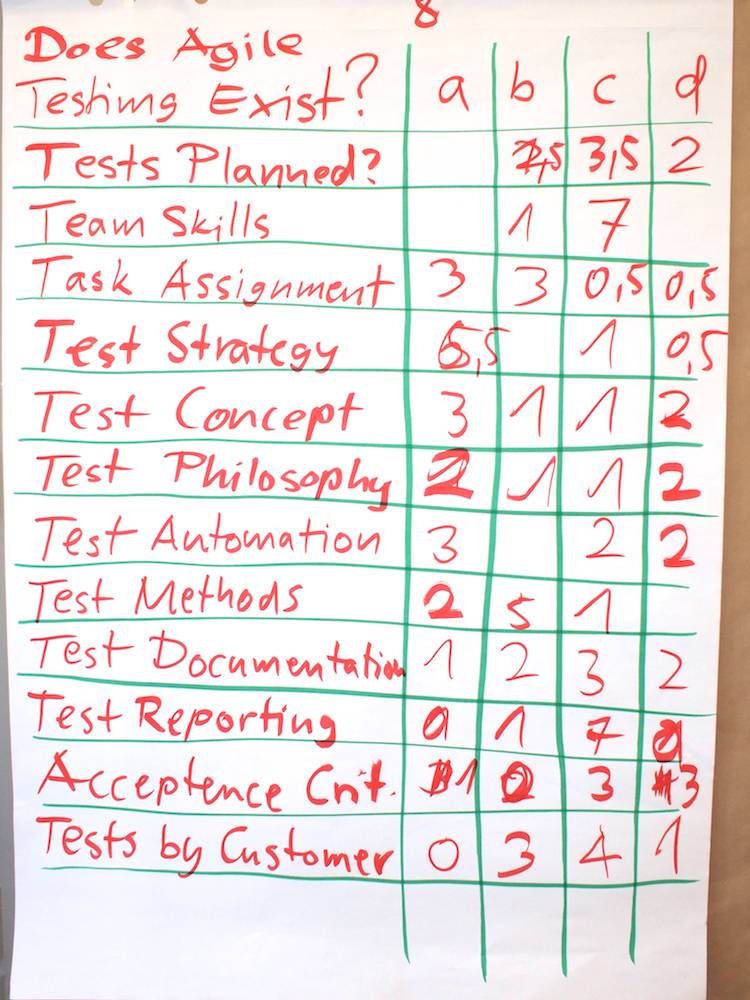 8
Does Agile
Testing Exist? a b c d
Tests Planned? 3,5 2
Team Skills 1 7
Task Assignment 3 3 0,5 0,5
Test Strategy 1 0,5
Test Concept 3 1 1 2
Test Philosophy 2 1 1 2
Test Automation 3 2 2
Test Methods 2 5 1
Test Documentation 1 2 3 2
Test Reporting 1
Acceptence Crit. 1 0 3 3
Tests by Customer 0 3 4 1